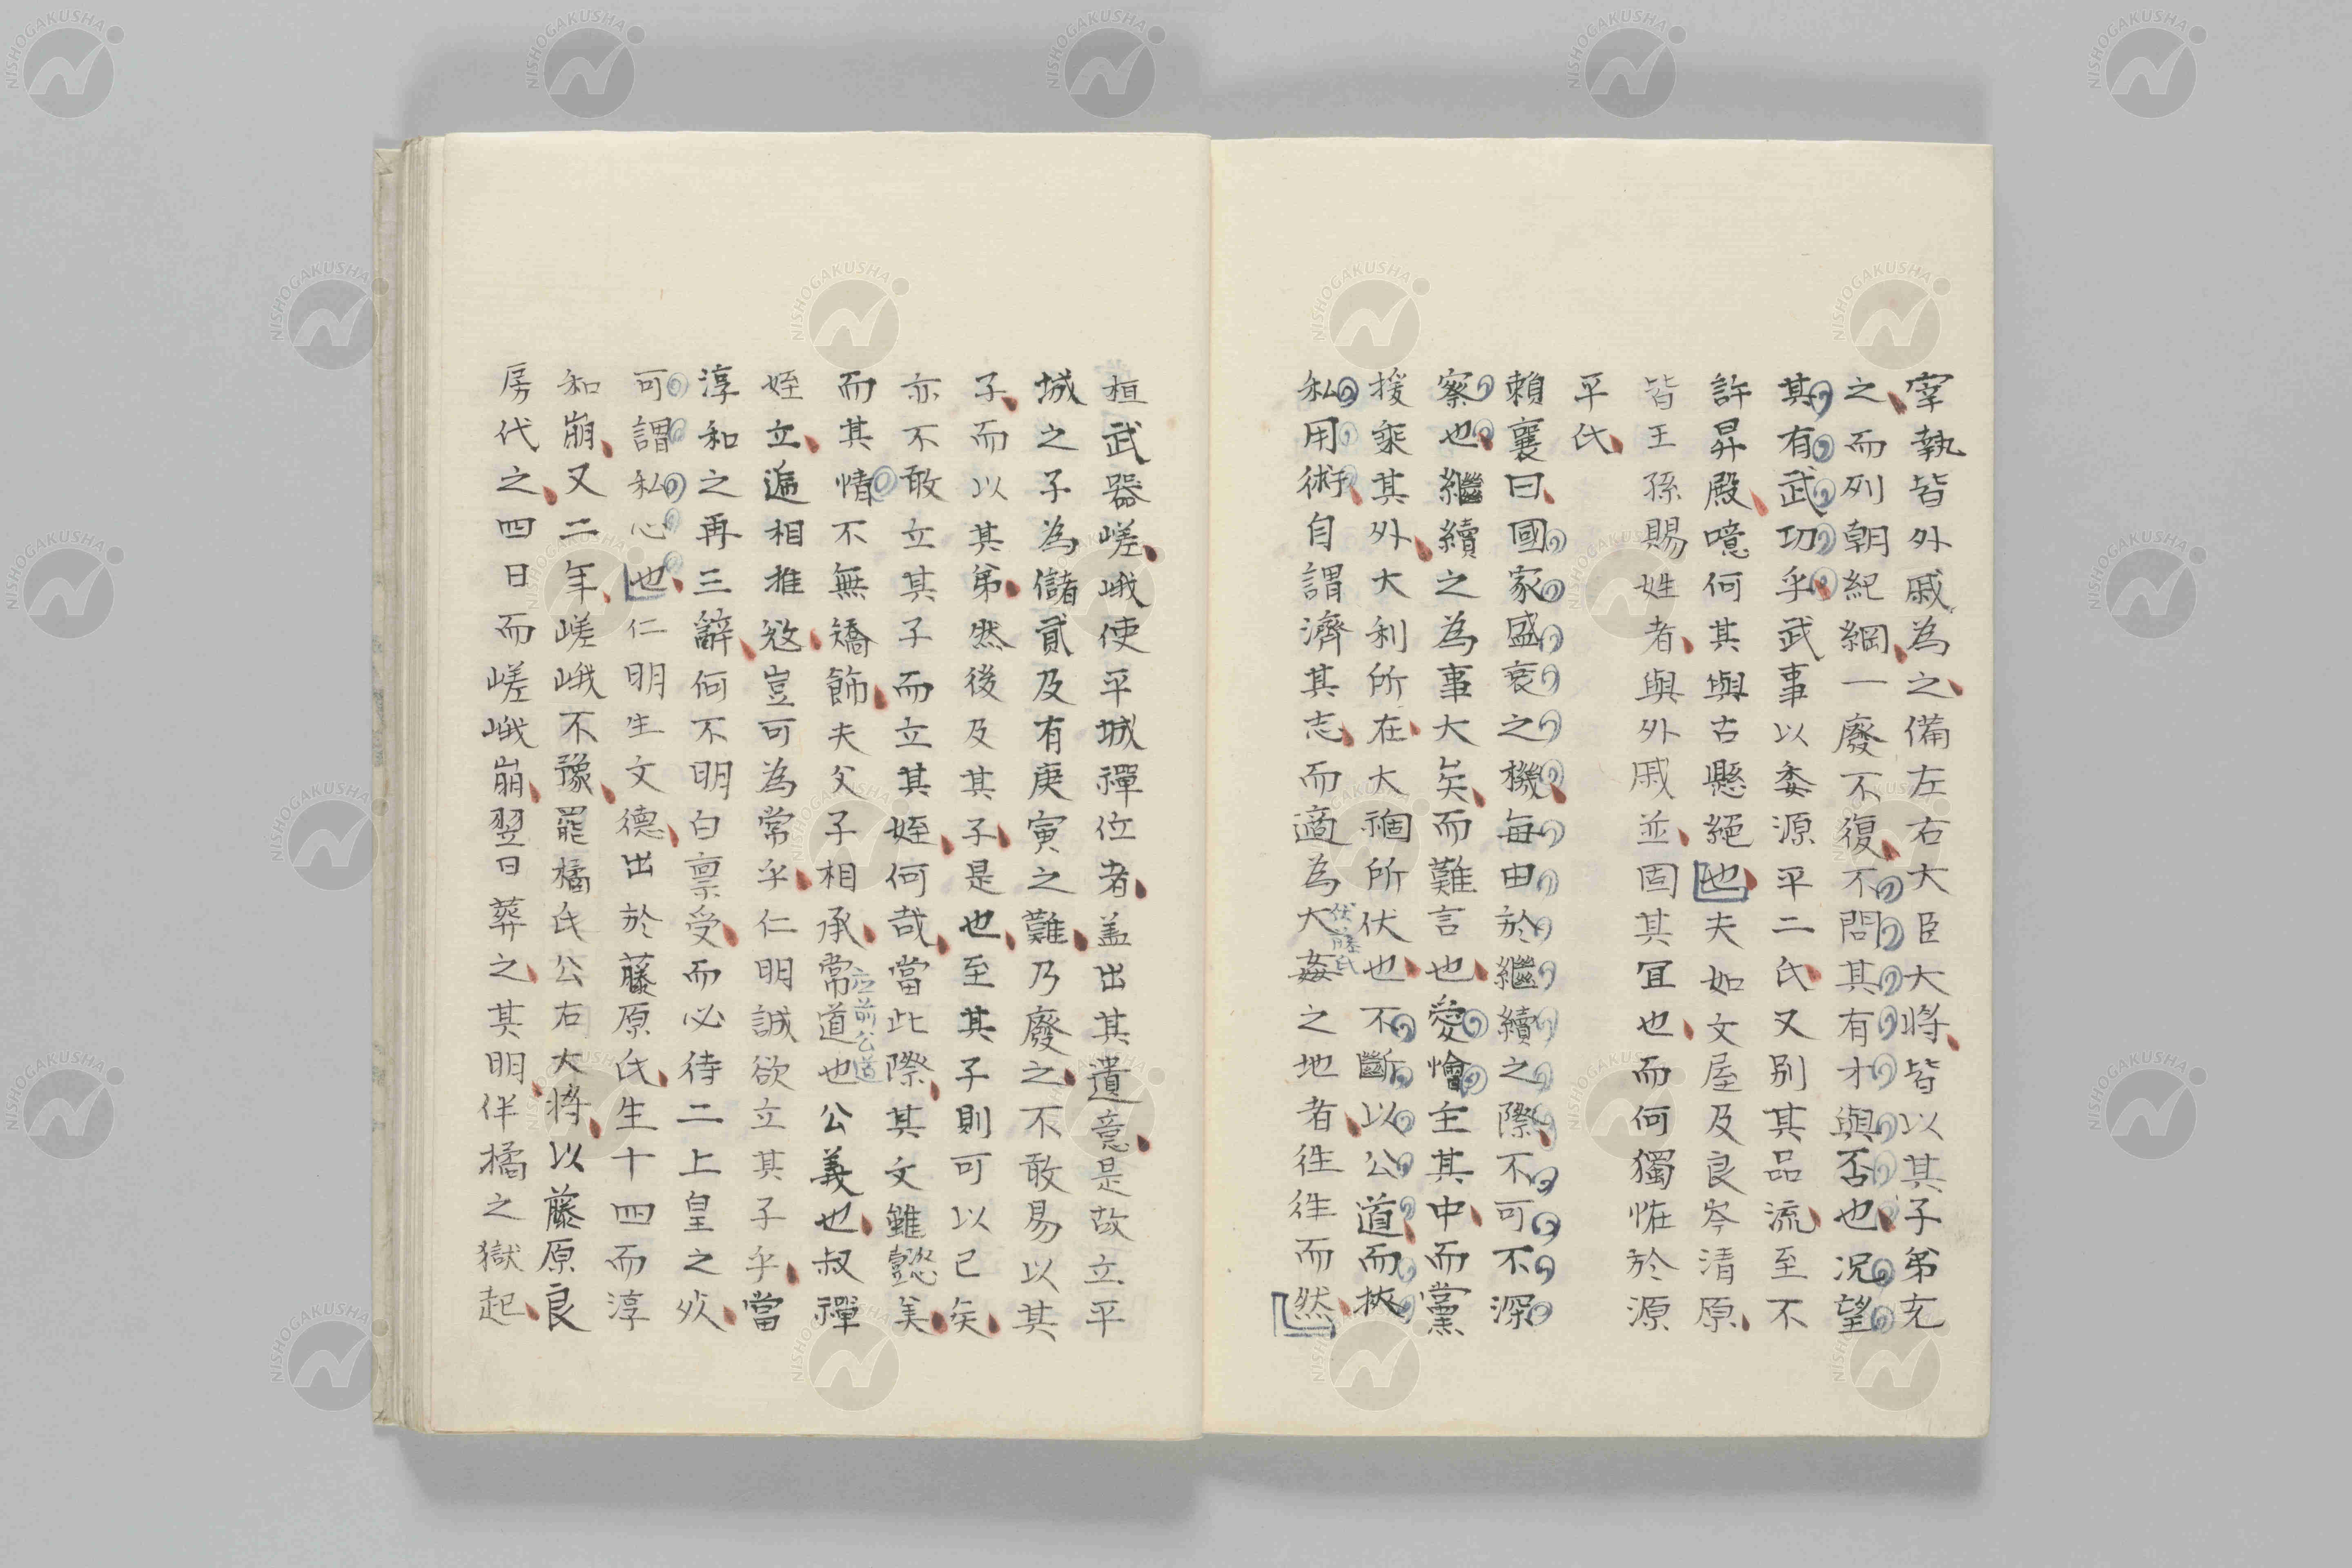 宰執皆外戚為之備左右大臣大將皆以其子弟充
之而列朝紀綱一廢不復不問其有才與否也況望
其有武功乎武事以委源平二氏又別其品流至不
許昇殿噫何其與古懸絕也夫如文屋及良岑清原
皆王孫賜姓者與外戚並固其宜也而何獨恠於源
平氏
賴襄曰國家盛衰之機每由於繼續之際不可不深
察也繼續之為事大矣而難言也愛憎主其中而黨
援乘其外大利所在大禍所伏也不斷以公道而挾
私用術自謂濟其志而適為大姦之地者徃徃而然
伏藤氏
桓武器嵯峨使平城禪位者盖出其遺意是故立平
城之子為儲貳及有庚寅之難乃廢之不敢易以其
子而以其弟然後及其子是也至其子則可以已矣
亦不敢立其子而立其姪何哉當此際其文雖懿美
而其情不無矯飾夫父子相承常道也公義也叔禪
應前公道
姪立遍相推遜豈可為常乎仁明誠欲立其子乎當
淳和之再三辭何不明白禀受而必待二上皇之
可謂私心也仁明生文德出於藤原氏生十四而淳
和崩又二年嵯峨不豫罷橘氏公右大將以藤原良
房代之四日而嵯峨崩翌日葬之其明伴橘之獄起
NISHOGAKUSHA